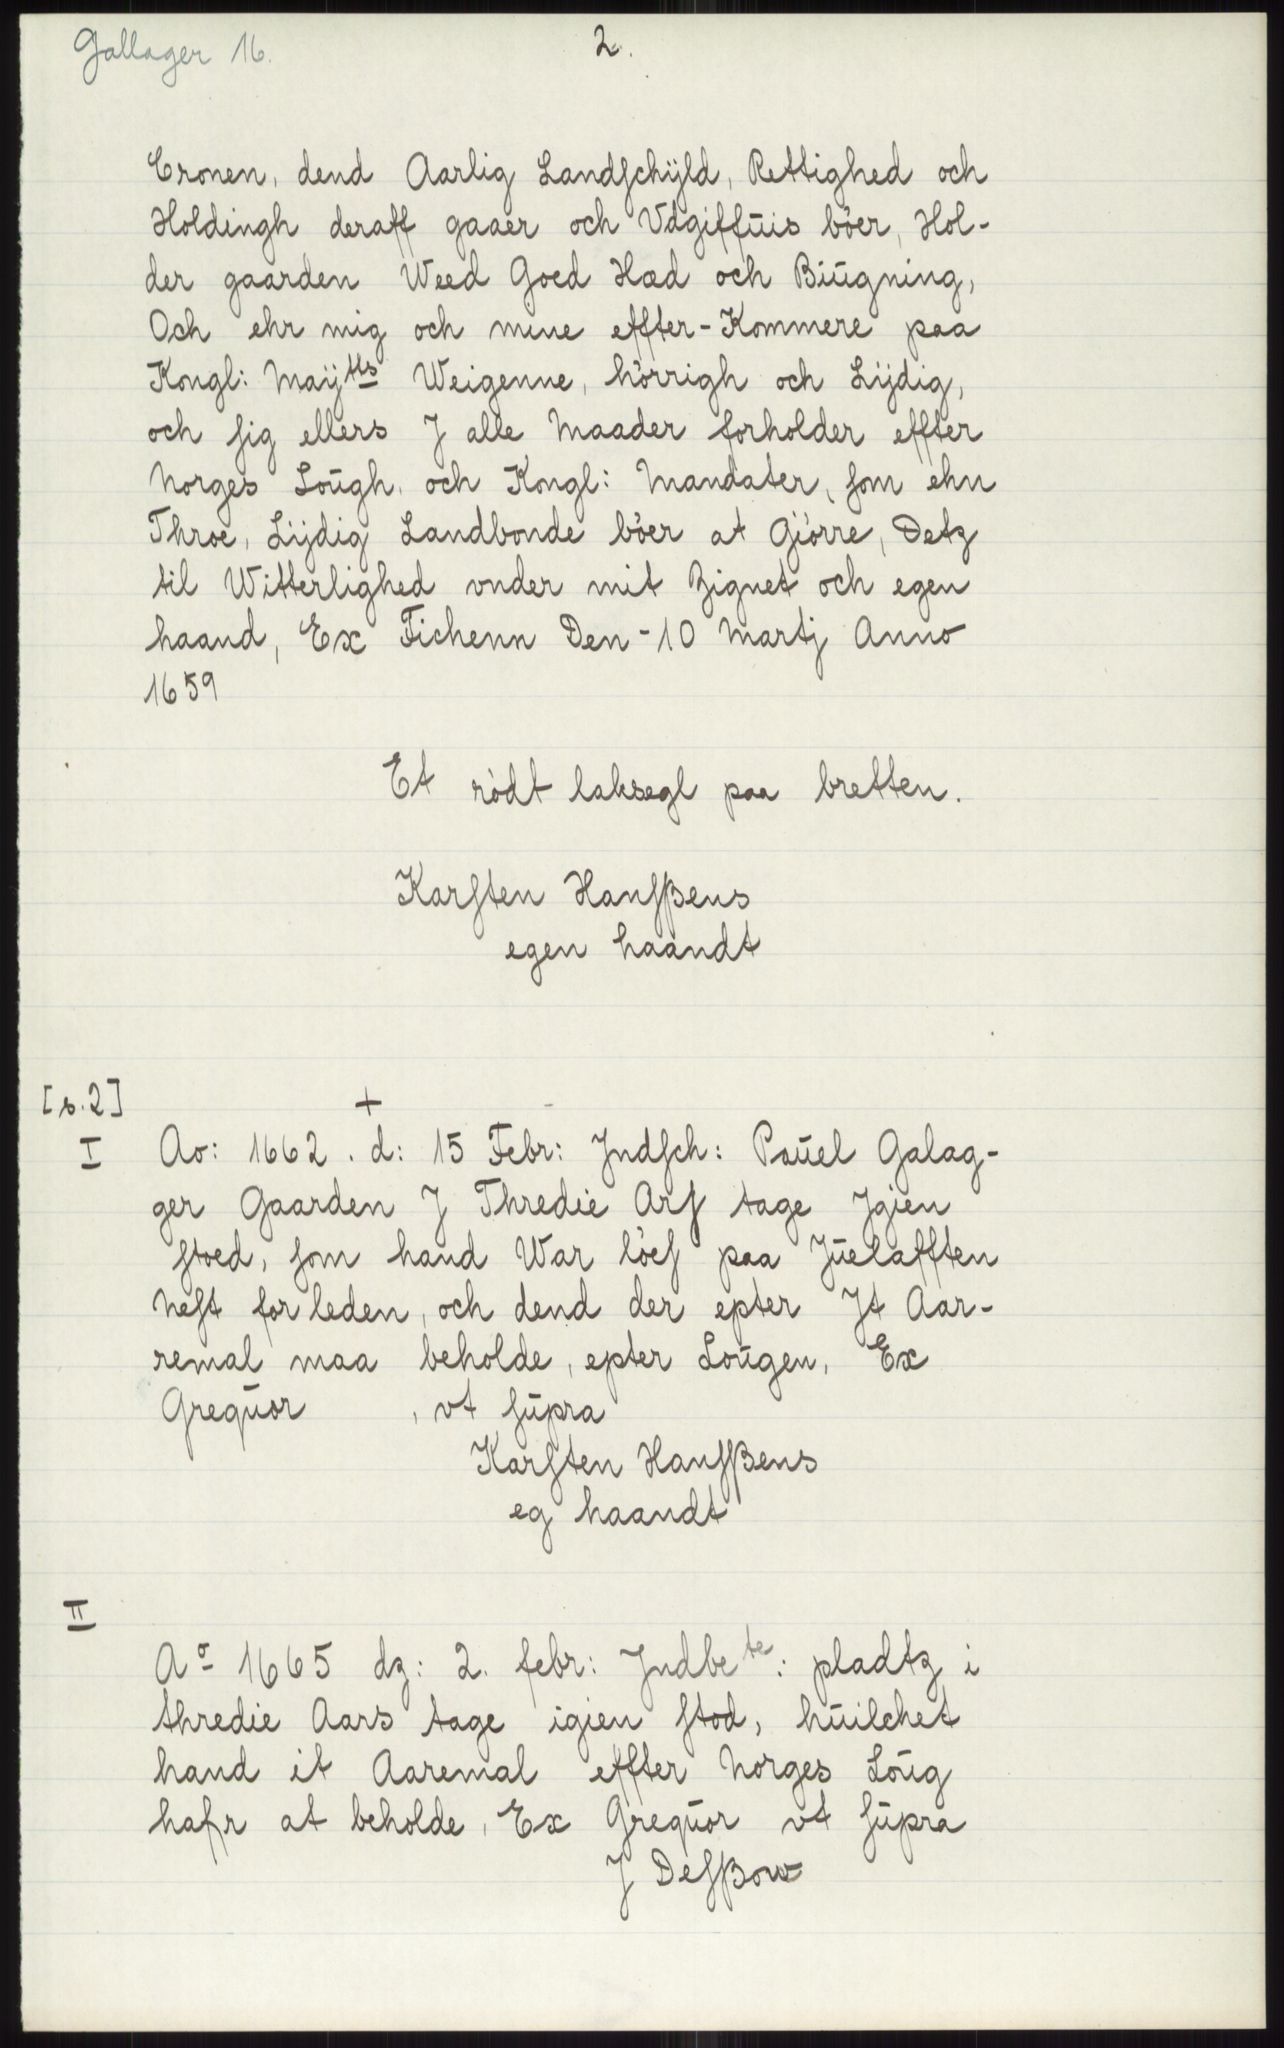 Gallager 16.
2.
Cronen, dend Aarlig Landſchÿld, Rettighed och
Holdingh deraff gaaer och Vdgiffuis bőer, Hol-
der gaarden Weed Goed Hæd och Biŭgning,
Och ehr mig och mine effter-Kommere paa
Kongl: Maÿtts Weigenne, hőrrigh och Lijdig,
och ſig ellers J alle Maader forholder effter
Norges Loŭgh, och Kongl: Mandater, ſom ehn
Throe, Lijdig Landbonde bőer at Giőrre, Detz
til Witterlighed vnder mit Zignet och egen
haand, Ex Fichenn Den-10 Martj Anno
1659
Et rődt laksegl paa bretten.
Karſten Hanſßens
egen haandt
[s.2]
+
I Ao: 1662. d: 15 Febr: Jndſch: Paŭel Galag-
ger Gaarden J Thredie Arſ tage Jgien
ſtoed, ſom hand War lőeſ paa Jŭelafften
Neſt forleden, och dend der epter Jt Aar-
remal maa beholde, epter Loŭgen, Ex
Greqŭor , vt ſŭpra
Karſten Hanſßens
eg haandt
II
Aº 1665 dz: 2. febr: Jndbete: pladtz i
thredie Aars tage igien ſtod, hŭilchet
hand it Aaremal effter Norges Loŭg
hafr at beholde, Ex Greqŭor vt ſŭpra
J Deſßow